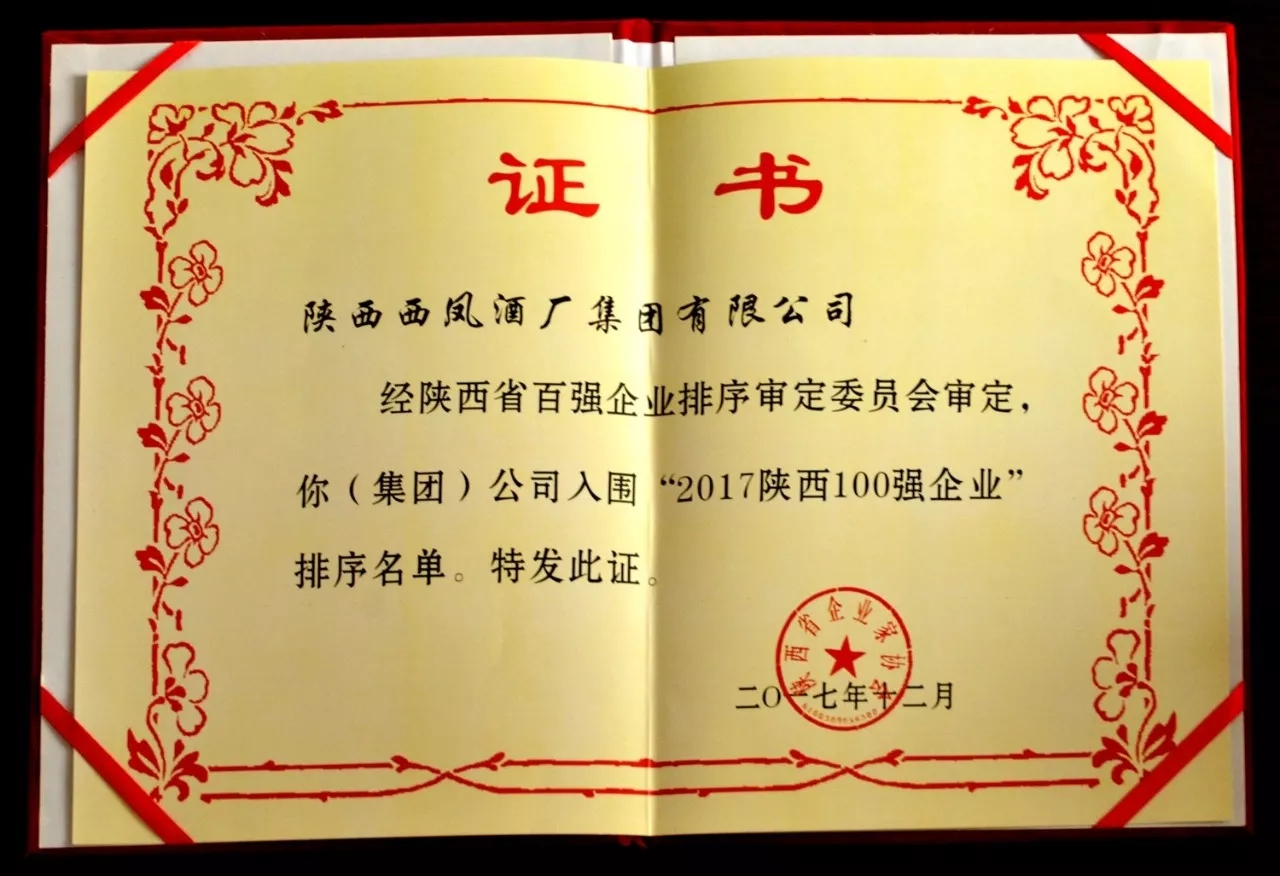 证 书
陕西西凤酒厂集团有限公司
经陕西省百强企业排序审定委员会审定，
你（集团）公司入围“2017陕西100强企业”
排序名单。特发此证。
陕西省企业家协会
二〇一七年十二月